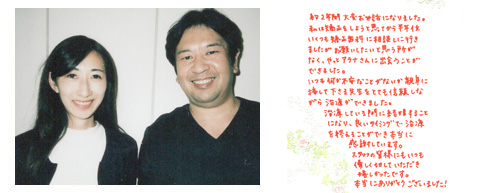 約2年間大変お世話になりました。
私は矯正をしようと思ってから半年位
いくつも矯正歯科に相談しに行き
ましたがお願いしたいと思う所が
なく、やっとアクアさんに出会うことが
できました。
いつも何か不安なことがないか親身に
接して下さる先生をとても信頼しな
がら治療ができました。
治療している間に結婚することに
なり、良いタイミングで治療
を終えることができ本当に
感謝しています。
スタッフの皆様にもいつも
優しく切していただき
嬉しかったです。
本当にありがとうございました!